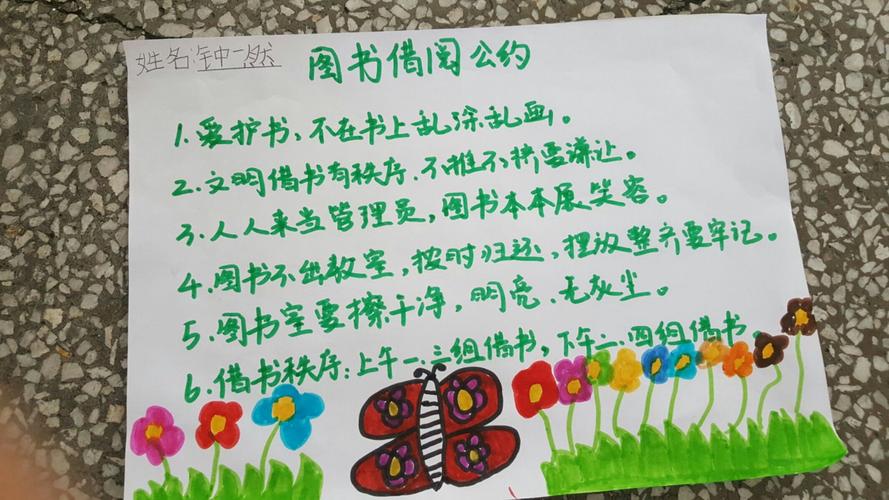 姓名:钟一然
图书借阅公约
1.爱护书,不在书上乱涂乱画。
2.文明借书有秩序.不推不挤要谦让。
3.人人来当管理员,图书本本展笑容。
4.图书不出教室,按时归还,摆放整齐要牢记。
5.图书室要擦干净,明亮.无灰尘。
6.借书秩序:上午一.三组借书,下午二.四组借书。